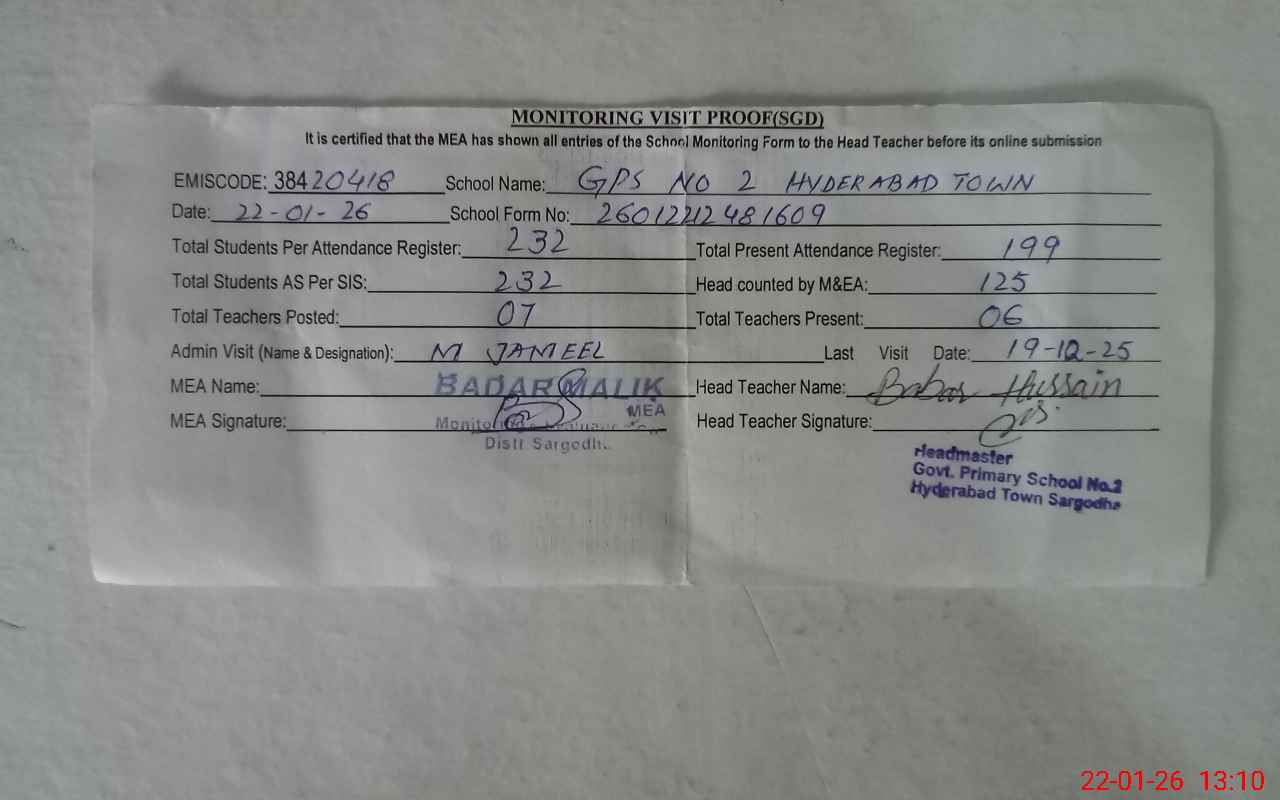 MONITORING VISIT PROOF(SGD)
It is certified that the MEA has shown all entries of the School Monitoring Form to the Head Teacher before its online submission
EMISCODE: 38420418 School Name: GPS NO 2 HYDERABAD TOWN
Date: 22-01-26 School Form No: 26012212481609
Total Students Per Attendance Register: 232 Total Present Attendance Register: 199
Total Students AS Per SIS: 232 Head counted by M&EA: 125
Total Teachers Posted: 07 Total Teachers Present: 06
Admin Visit (Name & Designation): M JAMEEL Last Visit Date: 19-12-25
MEA Name: BADAR MALIK Head Teacher Name: Babar Hussain
MEA
MEA Signature: Head Teacher Signature:
Distt. Sargodha
Headmaster
Govt. Primary School No.2
Hyderabad Town Sargodha
22-01-26 13:10